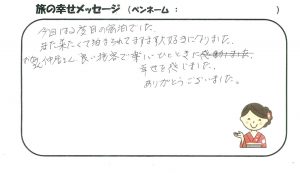 旅の幸せメッセージ (ペンネーム : )
今日は2度目の宿泊でした。
また来たくて泊まられてますます大好きになりました。
お気 仲居さん 良い接客で楽しいひとときに感動しました
幸せを感じました。
ありがとうございました。